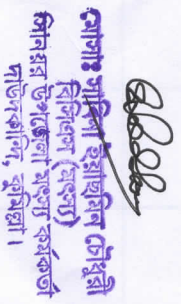 মোসাঃ সাবিনা ইয়াছমিন চৌধুরী
বিসিএস (মৎস্য)
সিনিয়র উপজেলা মৎস্য কর্মকর্তা
দাউদকান্দি, কুমিল্লা।